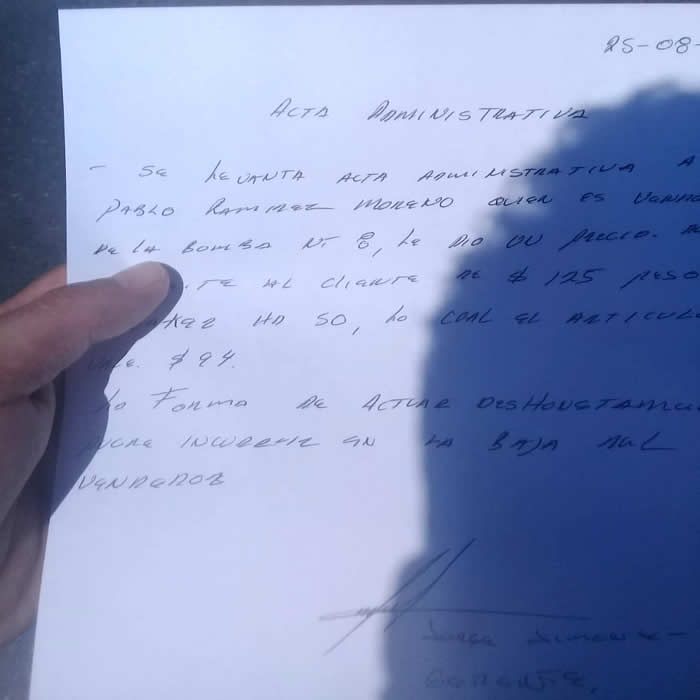 25-08-
ACTA ADMINISTRATIVA
- SE LEVANTA ACTA ADMINISTRATIVA A
PABLO RAMIREZ MORENO QUIEN ES VENDE
DE LA BOMBA Nº 8, LE DIO UN PRECIO.
TE AL CLIENTE DE $125 PESO
HD 50, LO CUAL EL ARTICULO
$94.
FORMA DE ACTUAR DESHONESTAME
INCURRIR EN LA BAJA DEL
VENDEDOR
JORGE
GERENTE.